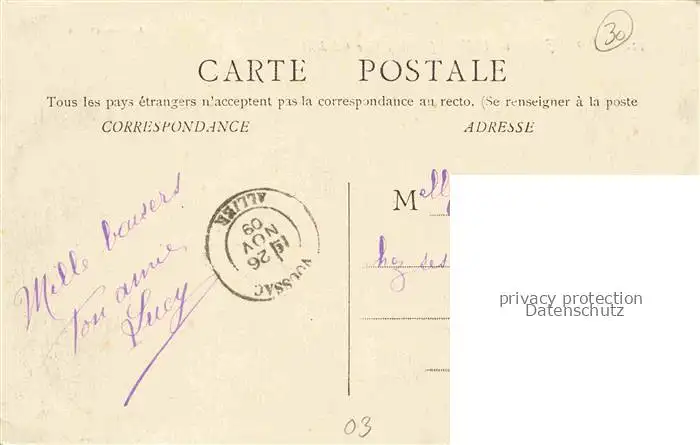 30
CARTE POSTALE
Tous les pays étrangers n'acceptent pas la correspondance au recto. (Se renseigner à la poste
CORRESPONDANCE
ADRESSE
Mille baisers
Ton amie
Lucy
VOUSSAC
26
NOV
09
ALLIER
Mell
hez ses
privacy protection
Datenschutz
03